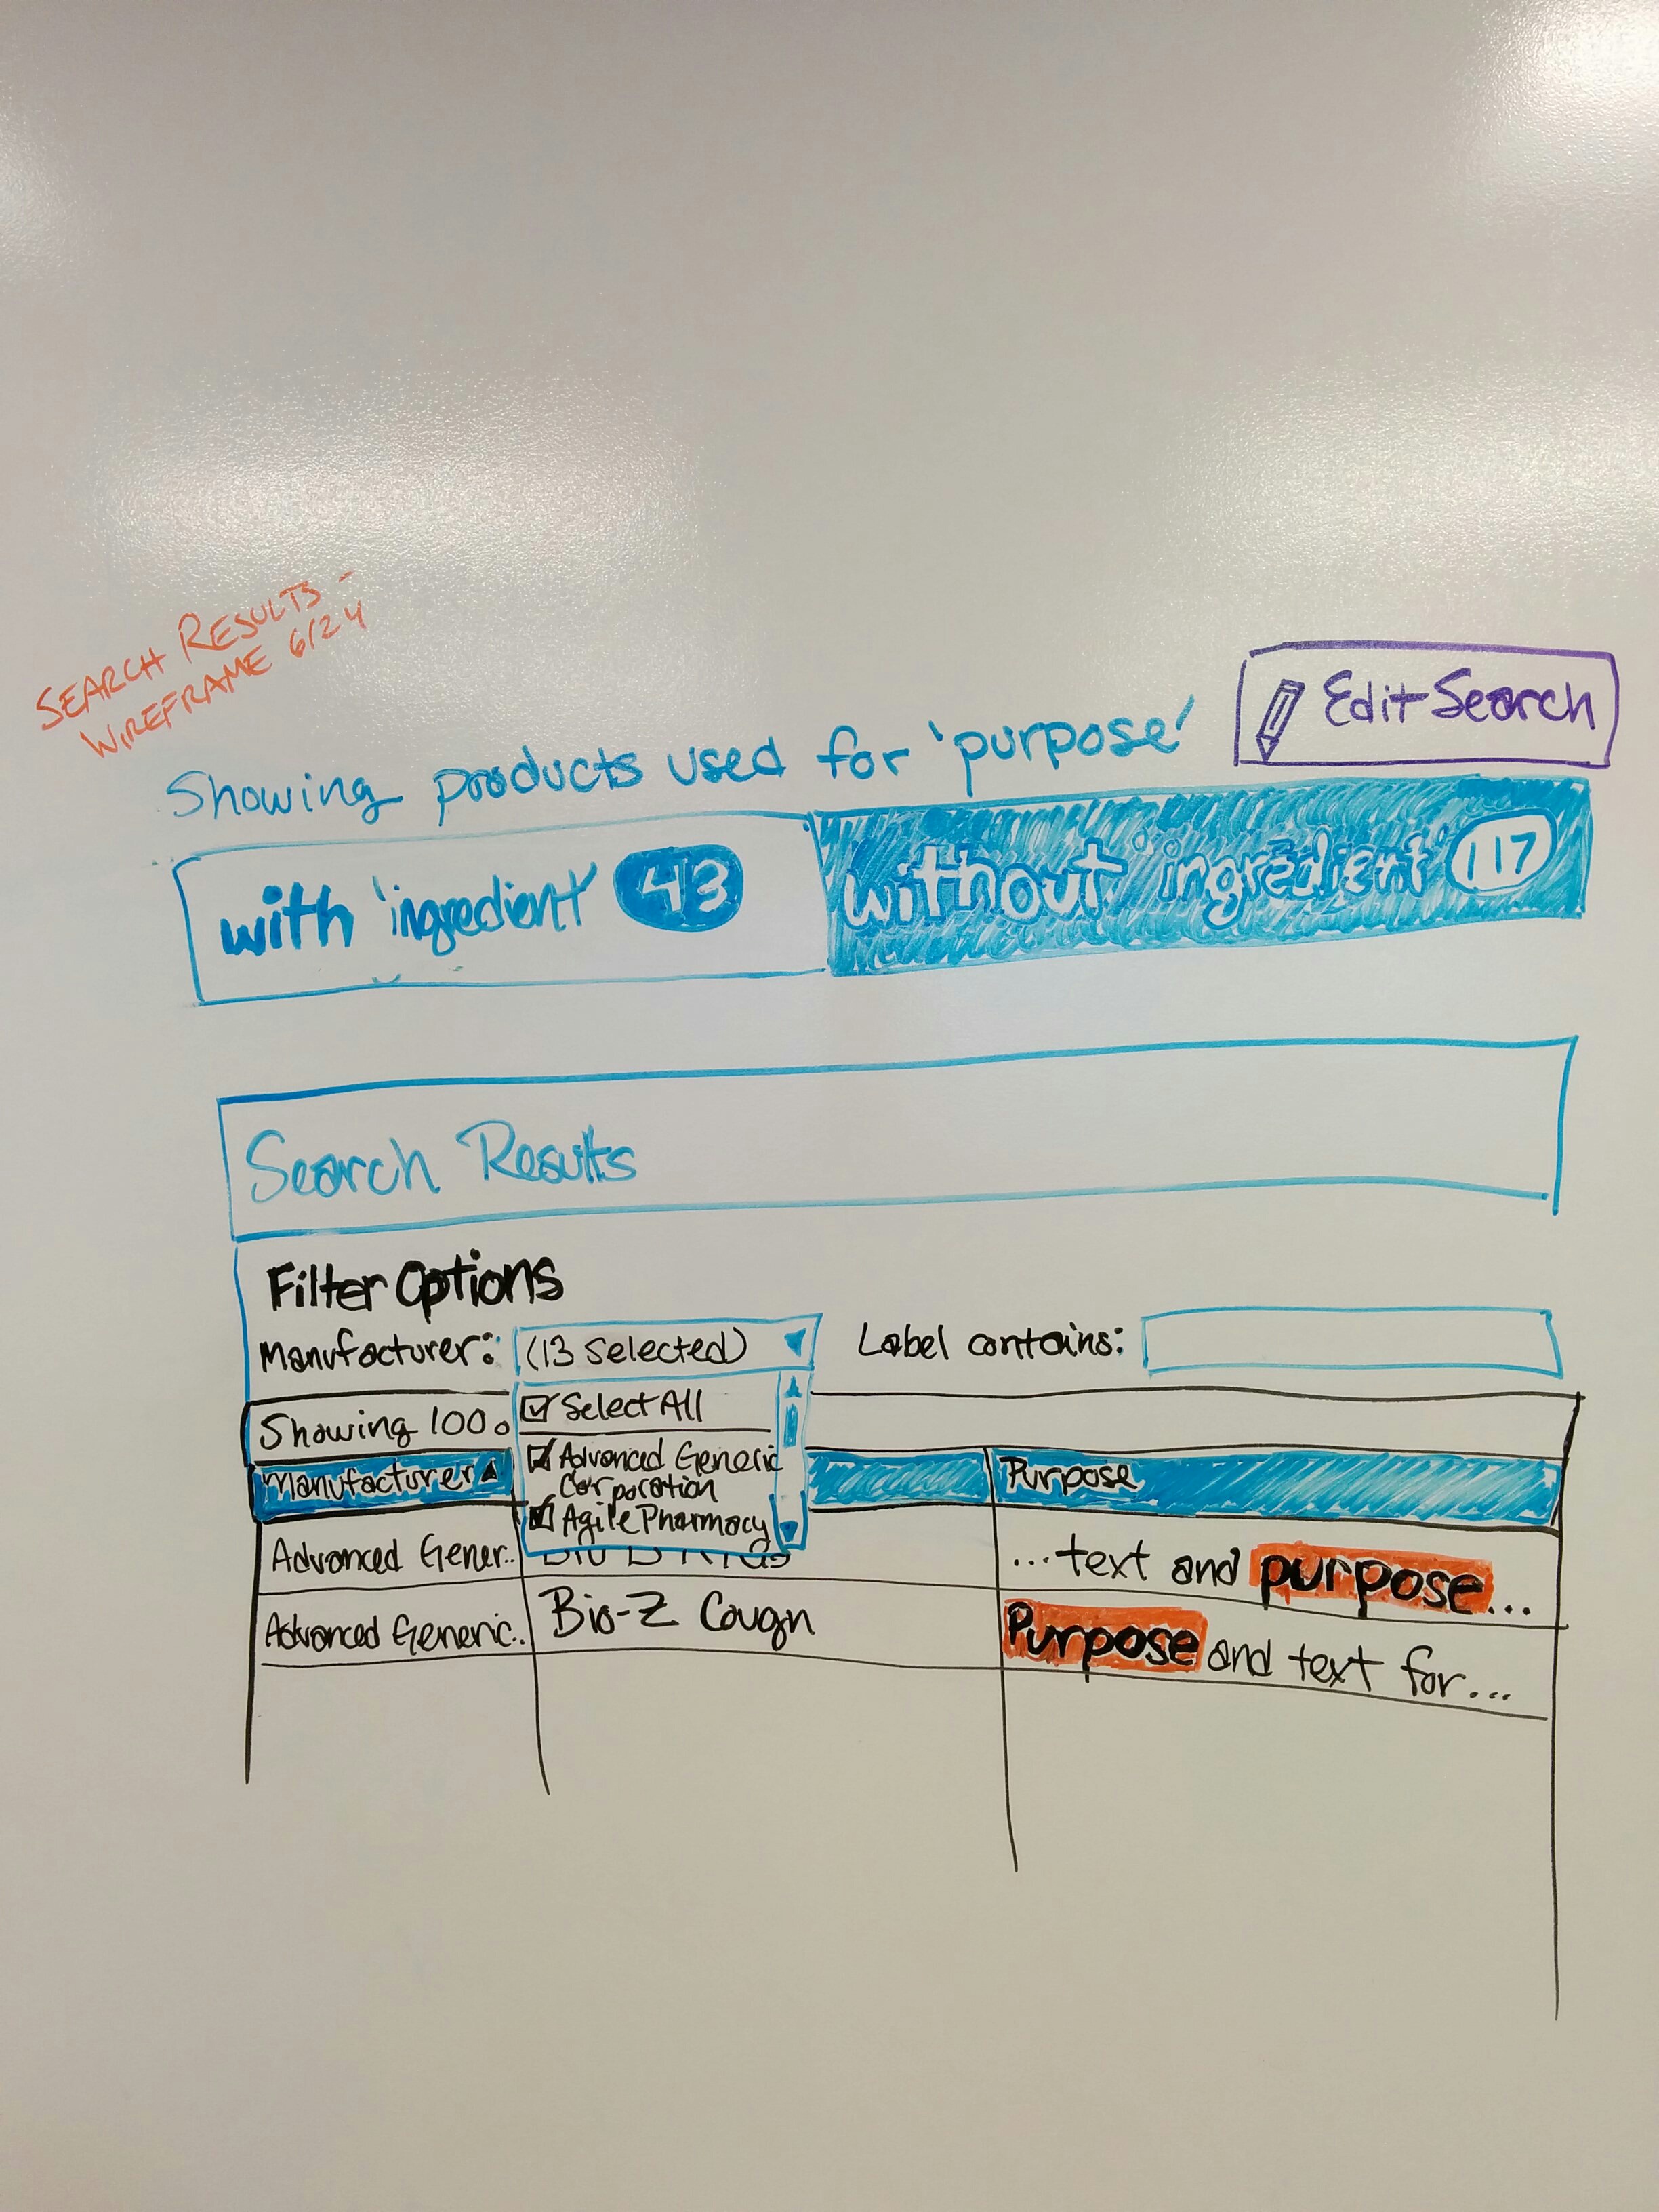 SEARCH RESULTS -
WIREFRAME 6/24
Edit Search
Showing products used for 'purpose'
with 'ingredient' 43
without 'ingredient' 117
Search Results
Filter Options
Manufacturer: (13 Selected)
Label contains:
Select All
Showing 100
Advanced Generic
Corporation
Agile Pharmacy
Manufacturer
Purpose
Advanced Gener..
...text and purpose...
Advanced Generic..
Bio-Z Cough
Purpose and text for...